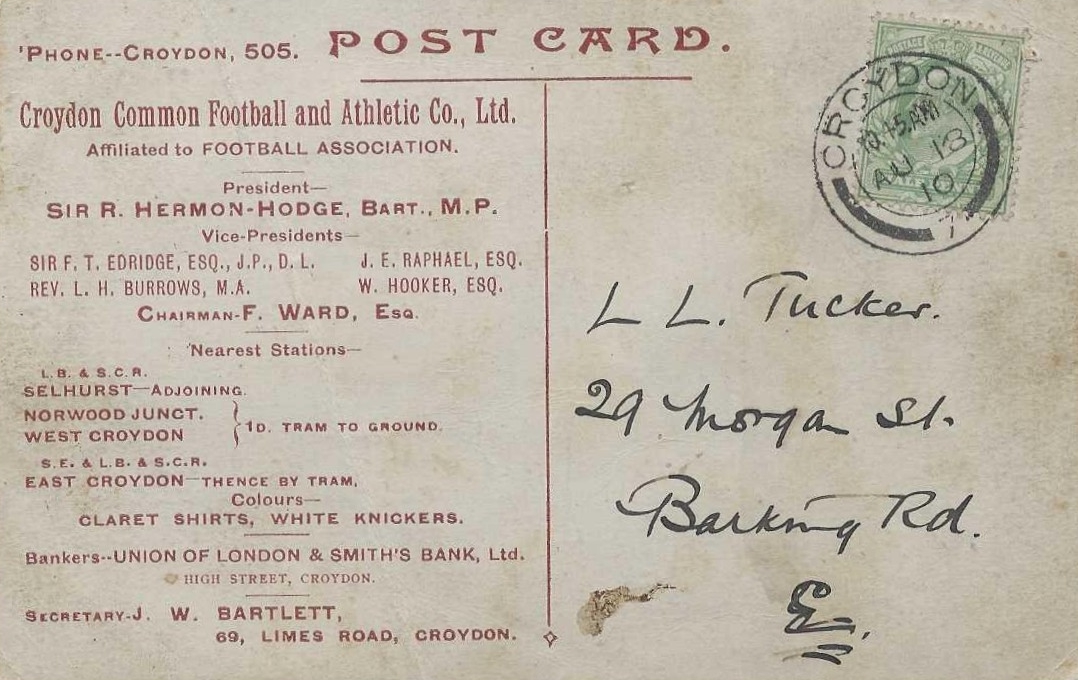 'PHONE--CROYDON, 505.
POST CARD.
Croydon Common Football and Athletic Co., Ltd.
Affiliated to FOOTBALL ASSOCIATION.
President—
SIR R. HERMON-HODGE, BART., M.P.
Vice-Presidents—
SIR F. T. EDRIDGE, ESQ., J.P., D. L. J. E. RAPHAEL, ESQ.
REV. L. H. BURROWS, M.A. W. HOOKER, ESQ.
CHAIRMAN-F. WARD, ESQ.
Nearest Stations—
L.B. & S.C.R.
SELHURST—ADJOINING.
NORWOOD JUNCT.
WEST CROYDON
1D. TRAM TO GROUND.
S.E. & L.B. & S.C.R.
EAST CROYDON—THENCE BY TRAM,
Colours—
CLARET SHIRTS, WHITE KNICKERS.
Bankers--UNION OF LONDON & SMITH'S BANK, Ltd.
HIGH STREET, CROYDON.
SECRETARY-J. W. BARTLETT,
69, LIMES ROAD, CROYDON.
CROYDON
10.15 AM
AU 18
10
7
L L. Tucker.
29 Morgan St.
Barking Rd.
E.